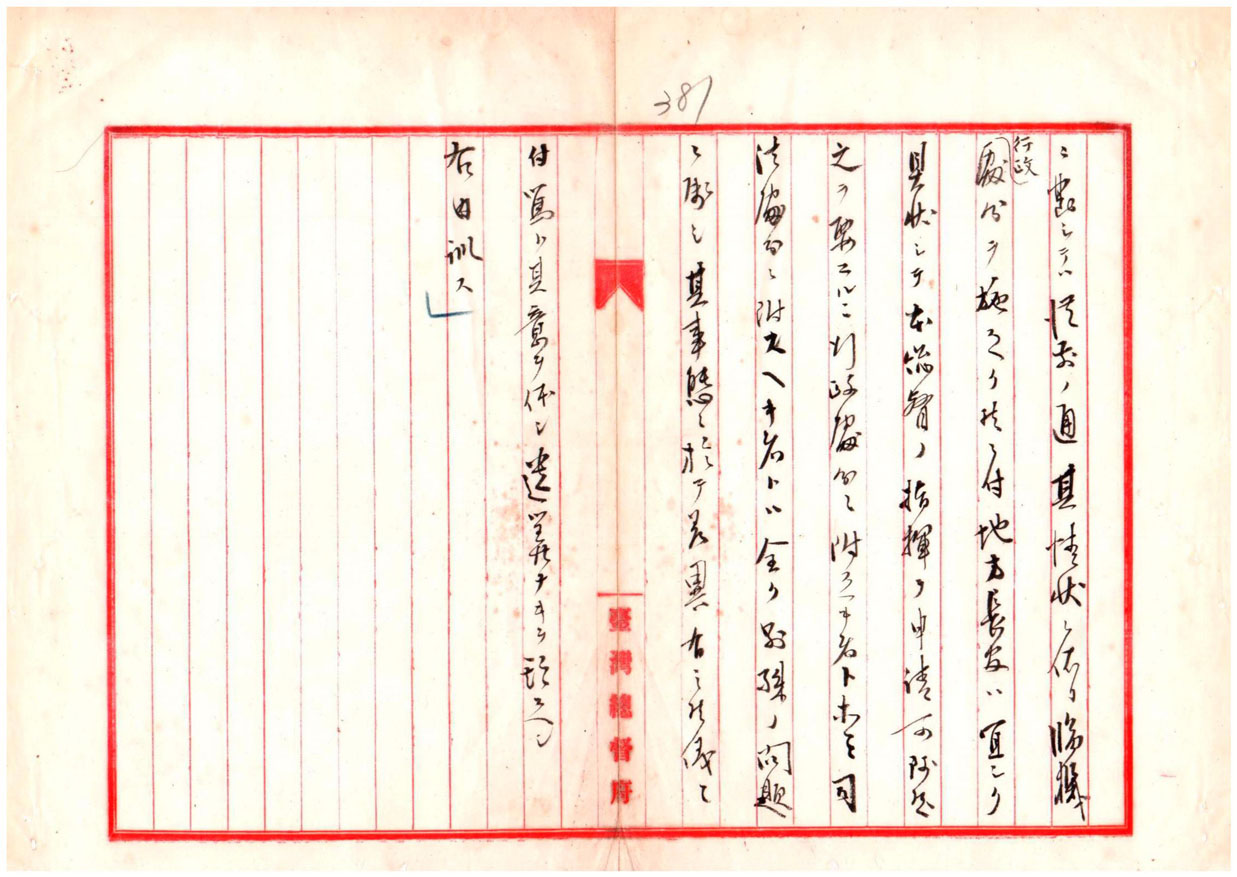 381
ニ對シテハ從前ノ通其情状ニ依リ臨機
行政
處分ヲ施スヘク候ニ付地方長官ハ宜シク
具状シテ本総督ノ指揮ヲ申請可致候
之ヲ要スルニ行政處分ニ附スヘキ者ト否ト司
法處分ニ附スヘキ者トハ全ク別殊ノ問題
ニ屬シ其事態ニ於テ差異有之候儀ニ
付篤ト其意ヲ体シ違算ナキヲ期スヘシ
右内訓ス
臺灣總督府